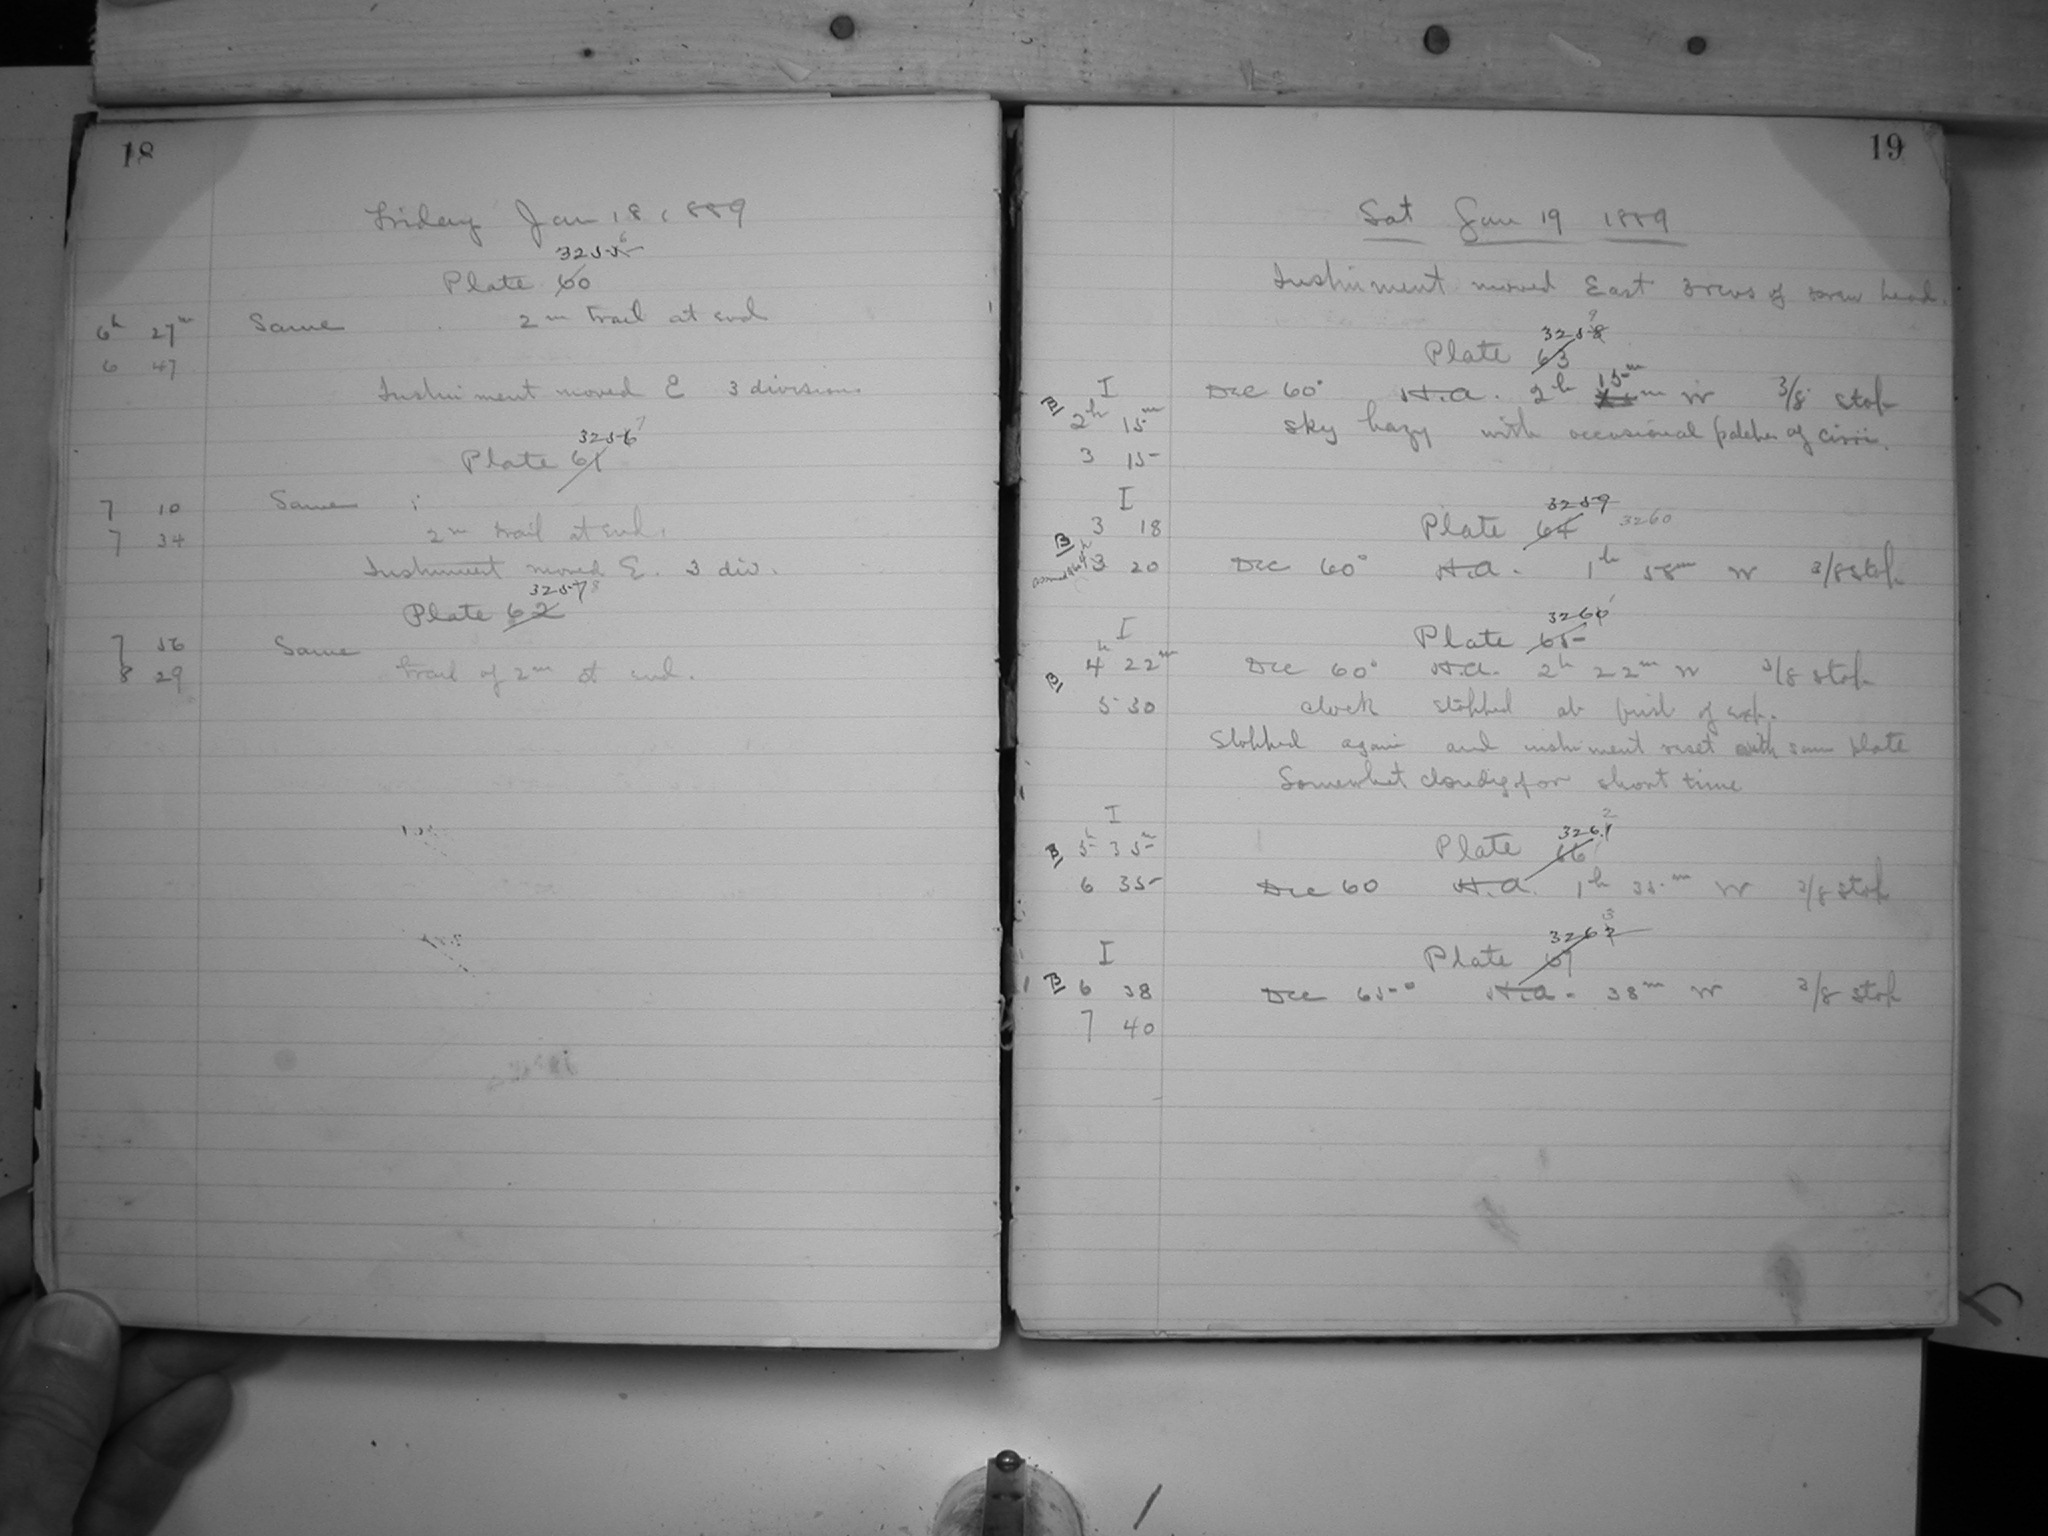 18
Friday Jan 18, 1889
3255 6
Plate 60
6h 27m Same 2m trail at end
6 47
Instrument moved E 3 divisions
3256 7
Plate 61
7 10 Same
7 34 2m trail at end.
Instrument moved E. 3 div.
3257 8
Plate 62
7 56 Same
8 29 trail of 2m at end.
19
Sat Jan 19 1889
Instrument moved East 3 revs of screw head.
3258 9
Plate 63
I
B 2h 15m Dec 60° H.A. 2h 15m W 3/8 stop
sky hazy with occasional patches of cirri.
3 15
I
3259 3260
Plate 64
B 3 18
3 20 Dec 60° H.A. 1h 58m W 3/8 stop
3260 1
Plate 65
I
B 4h 22m Dec 60° H.A. 2h 22m W 3/8 stop
5 30 clock stopped at first of exp.
Stopped again and instrument reset with same plate
Somewhat cloudy for short time
I
3261 2
Plate 66
B 5h 35m
6 35 Dec 60 H.A. 1h 35m W 3/8 stop
3262 3
Plate 67
I
B 6 38 Dec 65° H.A. 38m W 3/8 stop
7 40